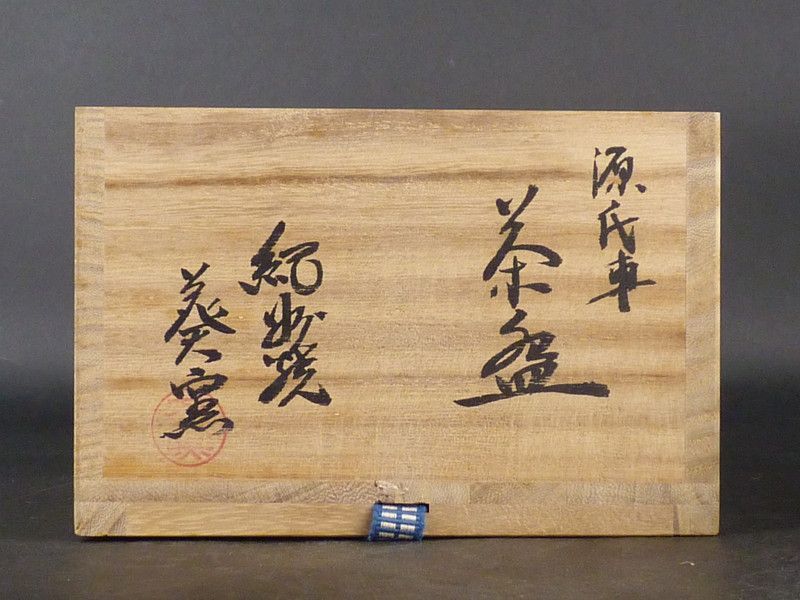 源氏車
茶盌
紀州焼
葵窯